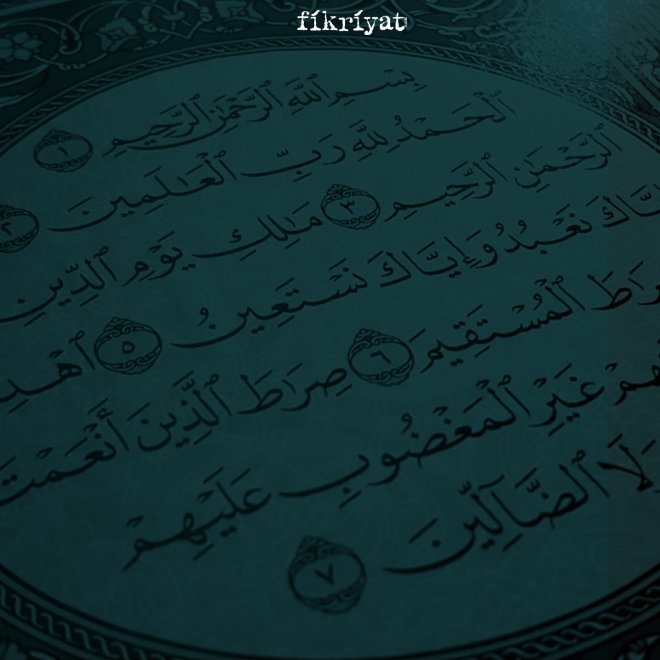 fíkríyat
بِسْمِ ٱللَّهِ ٱلرَّحْمَٰنِ ٱلرَّحِيمِ ١
ٱلْحَمْدُ لِلَّهِ رَبِّ ٱلْعَٰلَمِينَ ٢
ٱلرَّحْمَٰنِ ٱلرَّحِيمِ ٣ مَٰلِكِ يَوْمِ ٱلدِّينِ
نَعْبُدُ وَإِيَّاكَ نَسْتَعِينُ ٥
ٱلْمُسْتَقِيمَ ٦ صِرَٰطَ ٱلَّذِينَ أَنْعَمْتَ
غَيْرِ ٱلْمَغْضُوبِ عَلَيْهِمْ
وَلَا ٱلضَّآلِّينَ ٧